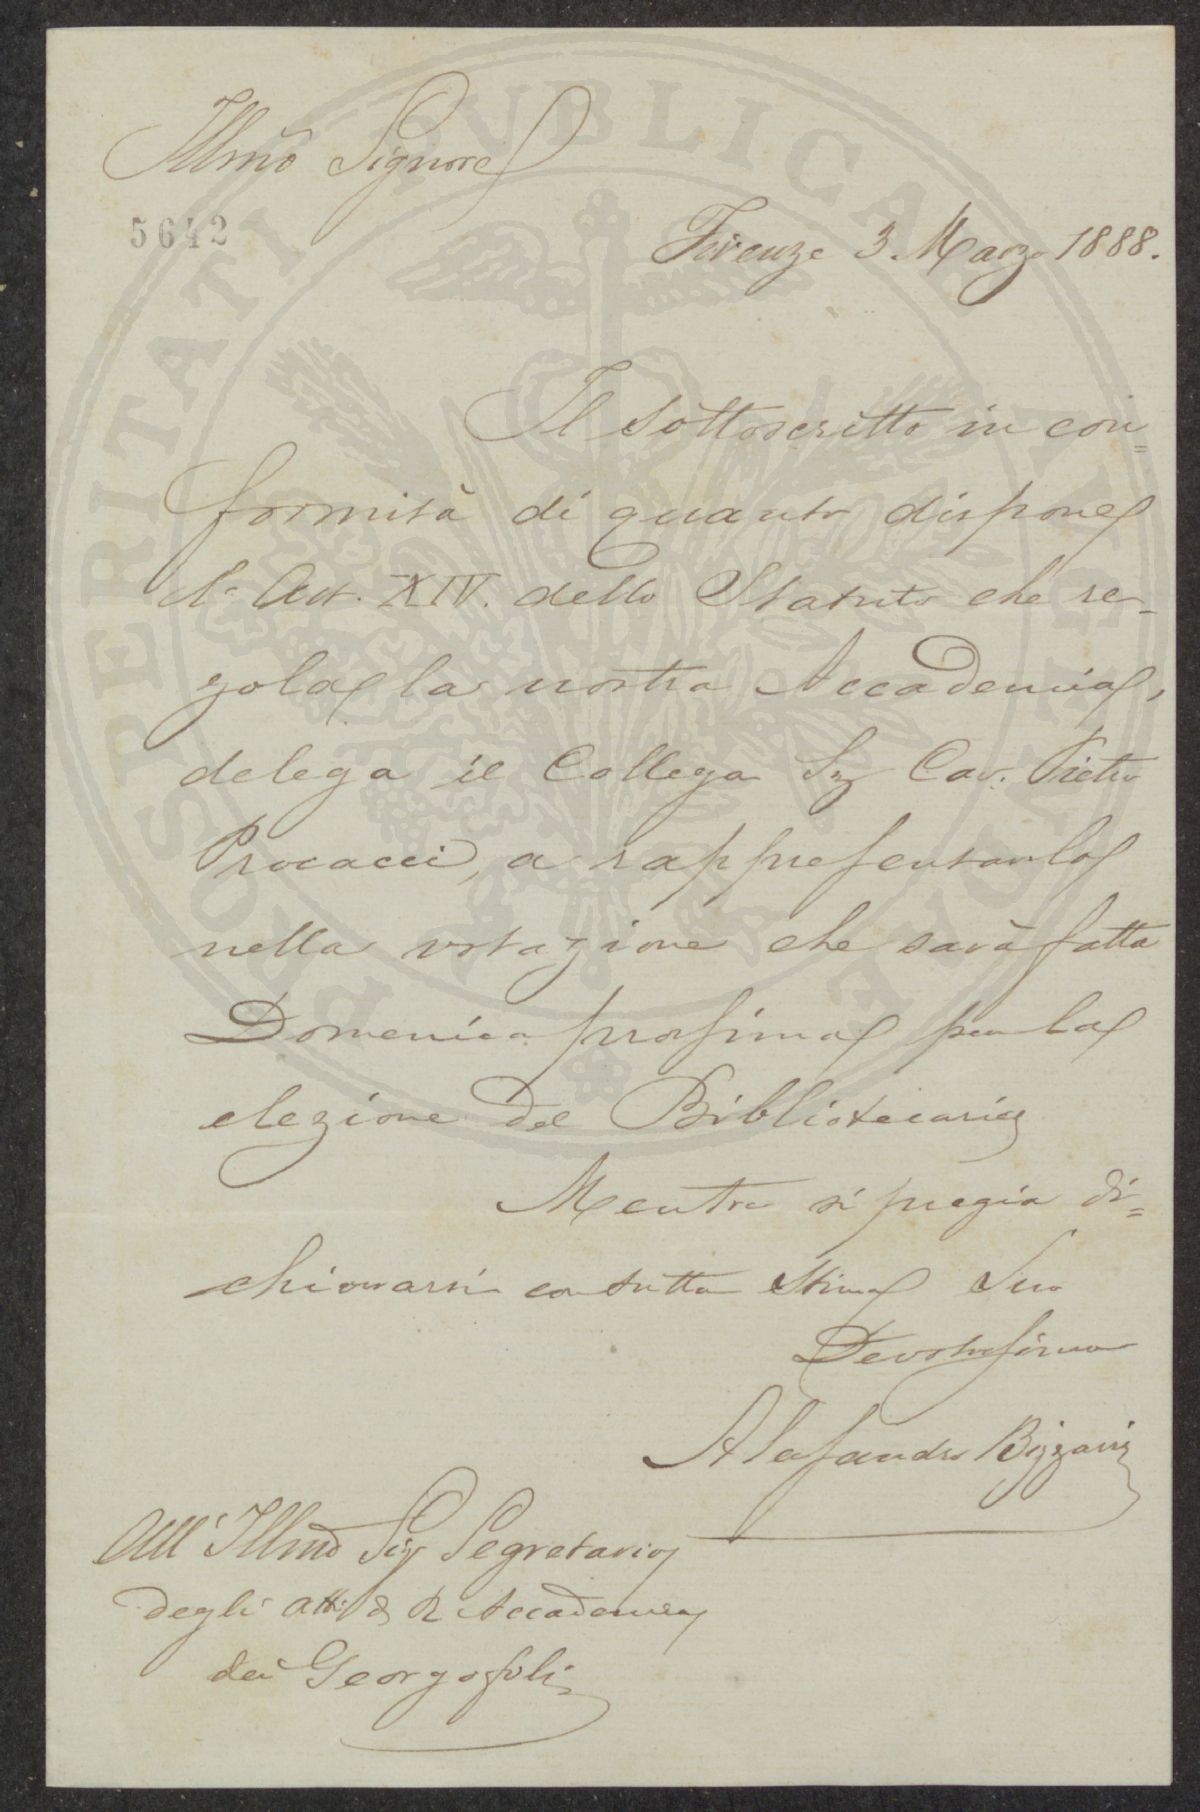 Illmo Signore
5642
Firenze 3 Marzo 1888.
Il Sottoscritto in con=
formità di quanto dispone
l'Art. XIV. dello Statuto che re-
gola la nostra Accademia,
delega il Collega Sig Cav. Pietro
Procacci, a rappresentarlo
nella votazione che sarà fatta
Domenica prossima per la
elezione del Bibliotecario
Mentre si pregia di=
chiararsi con tutta Stima Suo
Devotissimo
Alessandro Bizzarri
All' Illmo Sig Segretario
degli Atti d R Accademia
dei Georgofili
PROSPERITATI PVBLICAE AVGENDAE